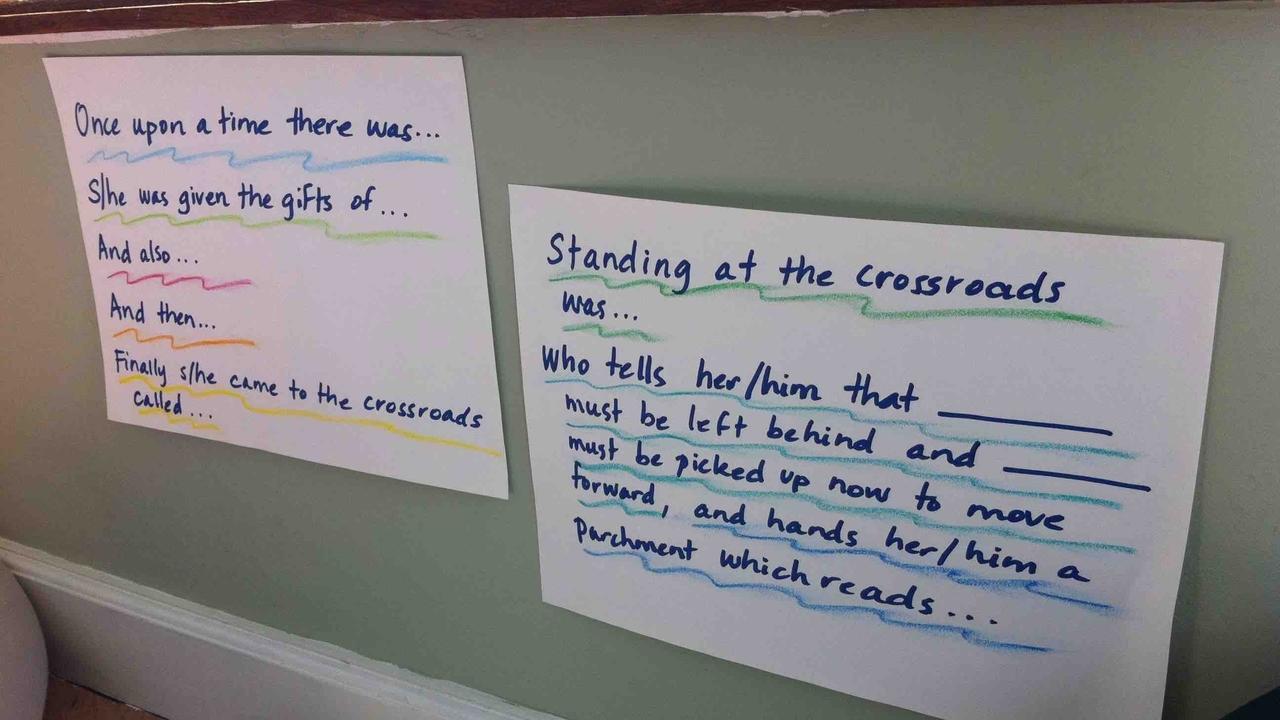 Once upon a time there was...
S/he was given the gifts of...
And also...
And then...
Finally s/he came to the crossroads
called...
Standing at the crossroads
was...
Who tells her/him that ______
must be left behind and ______
must be picked up now to move
forward, and hands her/him a
parchment which reads....